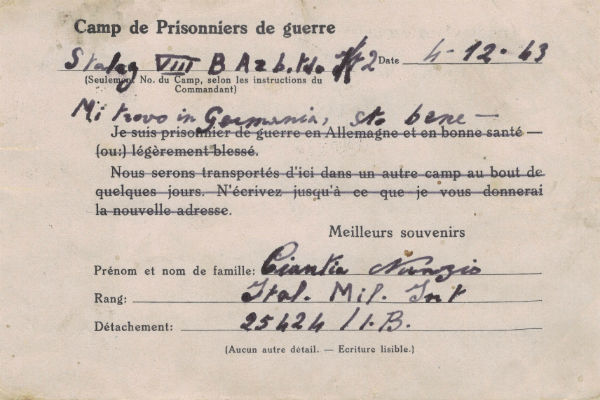 Camp de Prisonniers de guerre
Stalag VIII B Arb. Kdo 2 Date 4-12-43
(Seulement No. du Camp, selon les instructions du
Commandant)
Mi trovo in Germania, sto bene —
Je suis prisonnier de guerre en Allemagne et en bonne santé —
(ou:) légèrement blessé.
Nous serons transportés d'ici dans un autre camp au bout de
quelques jours. N'écrivez jusqu'à ce que je vous donnerai
la nouvelle adresse.
Meilleurs souvenirs
Prénom et nom de famille: Ciantia Nunzio
Rang: Ital. Mil. Int
Détachement: 25424 / I.B.
(Aucun autre détail. — Ecriture lisible.)